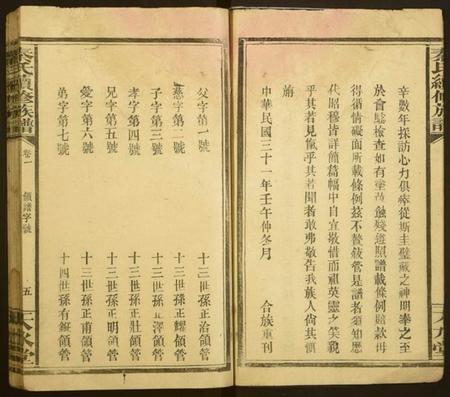 辛數年採訪心力俱瘁從斯圭璧藏之神明奉之至
於會驗檢查如有塗蝕殘遵照譜載條例賠款毋
得循情縱面所載條例茲不贅後管是譜者須知歷
代昭穆皆詳簡篇幅中自宜敬惜而祖英靈之笑貌
乎其若見愾乎其若聞者敢弗敬告我族人尚其慎
旃
中華民國三十一年壬午仲冬月 合族重刊
秦氏續修族譜
卷一
領譜字號
五
父字第一號 十三世孫正治領管
慈字第二號 十三世孫正耀領管
子字第三號 十三世孫正澤領管
孝字第四號 十三世孫正壯領管
兄字第五號 十三世孫正明領管
愛字第六號 十三世孫正甫領管
弟字第七號 十四世孫有鉦領管